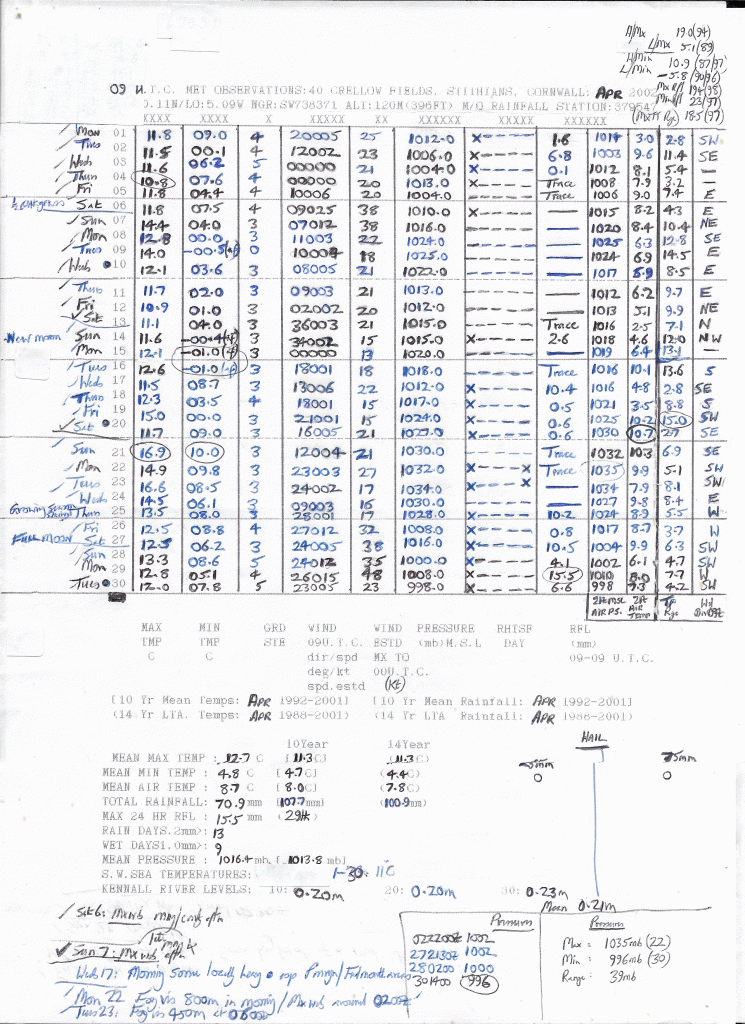 A/Mx 19.0(94)
L/Mx 5.1(89)
H/Min 10.9(87/97)
L/Min -5.8(90/96)
Mx R/f 194(98)
Min R/f 23(97)
(Mx TT Rge) 18.5(97)
09 U.T.C. MET OBSERVATIONS:40 CRELLOW FIELDS, STITHIANS, CORNWALL: APR 2002
50.11N/LO:5.09W NGR:SW738371 ALT:120M(396FT) M/O RAINFALL STATION:379547
XXXX XXXX X XXXXX XX XXXXXX XXXXXX XXXXX
Mon 01 11.8 09.0 4 20005 25 1012.0 X---- 1.6 1014 3.0 2.8 SW
Tues 02 11.5 00.1 4 12002 23 1006.0 X---- 6.8 1003 9.6 11.4 SE
Wed 03 11.6 06.2 5 00000 21 1004.0 X---- 0.1 1012 8.1 5.4 —
Thurs 04 10.8 07.6 4 00000 20 1013.0 X---- Trace 1008 7.9 3.2 —
Fri 05 11.8 04.4 4 10006 20 1004.0 X---- Trace 1006 9.0 7.4 E
Sat 06 11.8 07.5 4 09025 38 1010.0 X---- — 1015 8.2 4.3 E
Sun 07 14.4 04.0 3 07012 38 1016.0 ----- — 1020 8.4 10.4 NE
Mon 08 12.8 00.0 3 11003 22 1024.0 ----- — 1025 6.3 12.8 SE
Tues 09 14.0 -00.5(af) 0 10004 18 1025.0 ----- — 1024 6.9 14.5 E
Wed 10 12.1 03.6 3 08005 21 1022.0 ----- — 1017 5.9 8.5 E
Thurs 11 11.7 02.0 3 09003 21 1013.0 ----- — 1012 6.2 9.7 E
Fri 12 10.9 01.0 3 02002 20 1012.0 ----- — 1013 5.1 9.9 NE
Sat 13 11.1 04.0 3 36003 21 1015.0 X---- Trace 1016 2.5 7.1 N
New moon Sun 14 11.6 -00.4(af) 3 34002 15 1015.0 X---- 2.6 1018 4.6 12.0 NW
Mon 15 12.1 -01.0(af) 3 00000 13 1020.0 ----- — 1019 6.4 13.1 —
Tues 16 12.6 -01.0(af) 3 18001 18 1018.0 X---- Trace 1016 10.1 13.6 S
Wed 17 11.5 08.7 3 13006 22 1012.0 X---- 10.4 1016 4.8 2.8 SE
Thurs 18 12.3 03.5 4 18001 15 1017.0 X---- 0.5 1021 3.5 8.8 S
Fri 19 15.0 00.0 3 21001 15 1024.0 X---- 0.6 1025 10.2 15.0 SW
Sat 20 11.7 09.0 3 16005 21 1027.0 X---- 0.6 1030 10.7 2.7 SE
Sun 21 16.9 10.0 3 12004 21 1030.0 ----- Trace 1032 10.3 6.9 SE
Mon 22 14.9 09.8 3 23003 27 1032.0 X---- X Trace 1035 9.9 5.1 SW
Tues 23 16.6 08.5 3 24002 17 1034.0 X---- X — 1034 7.9 8.1 SW
Wed 24 14.5 06.1 3 09003 16 1030.0 X---- — 1027 9.8 8.4 E
Thurs 25 13.5 08.0 3 28001 17 1028.0 X---- 10.2 1024 8.9 5.5 W
Fri 26 12.5 08.8 4 27012 32 1008.0 X---- 0.8 1017 8.7 3.7 W
Full moon Sat 27 12.5 06.2 3 24005 38 1016.0 X---- 10.5 1004 9.9 6.3 SW
Sun 28 13.3 08.6 5 24012 35 1000.0 X---- 4.1 1002 6.1 4.7 SW
Mon 29 12.8 05.1 4 26015 48 1008.0 X---- 15.5 1010 8.0 7.7 W
Tues 30 12.0 07.8 5 23005 23 998.0 X---- 6.6 998 9.3 4.2 SW
MAX MIN GRD WIND WIND PRESSURE RHTSF RFL
TMP TMP STE 09U.T.C. ESTD (mb)M.S.L DAY (mm)
C C dir/spd MX TO 09-09 U.T.C.
deg/kt 00U.T.C.
spd.estd (Kt)
[10 Yr Mean Temps: APR 1992-2001] [10 Yr Mean Rainfall: APR 1992-2001]
(14 Yr LTA. Temps: APR 1988-2001) (14 Yr LTA Rainfall: APR 1988-2001)
10Year 14Year HAIL
MEAN MAX TEMP : 12.7 C [11.3C] (11.3C) 5mm
MEAN MIN TEMP : 4.8 C [4.7C] (4.4C)
MEAN AIR TEMP : 8.7 C [8.0C] (7.8C)
TOTAL RAINFALL: 70.9mm [107.7mm] (100.9mm)
MAX 24 HR RFL : 15.5 mm (29th)
RAIN DAYS.2mm>: 13
WET DAYS1.0mm>: 9
MEAN PRESSURE : 1016.4 mb. [1013.8 mb]
S.W.SEA TEMPERATURES: 1-30: 11°C
KENNALL RIVER LEVELS: 10: 0.20m 20: 0.20m 30: 0.23m
Mean 0.21m
Sat 6: Mx wb
Sun 7: Mx wb
Wed 17: Morning some locally heavy
Mon 22 Fog vis 800m in morning / Mx wb around 0200z
Tues 23: Fog vis 450m at 0600
Pressures
022200z 1002
272130z 1002
280200 1000
301400 996
Pressures
Max : 1035mb (22)
Min : 996mb (30)
Range : 39mb